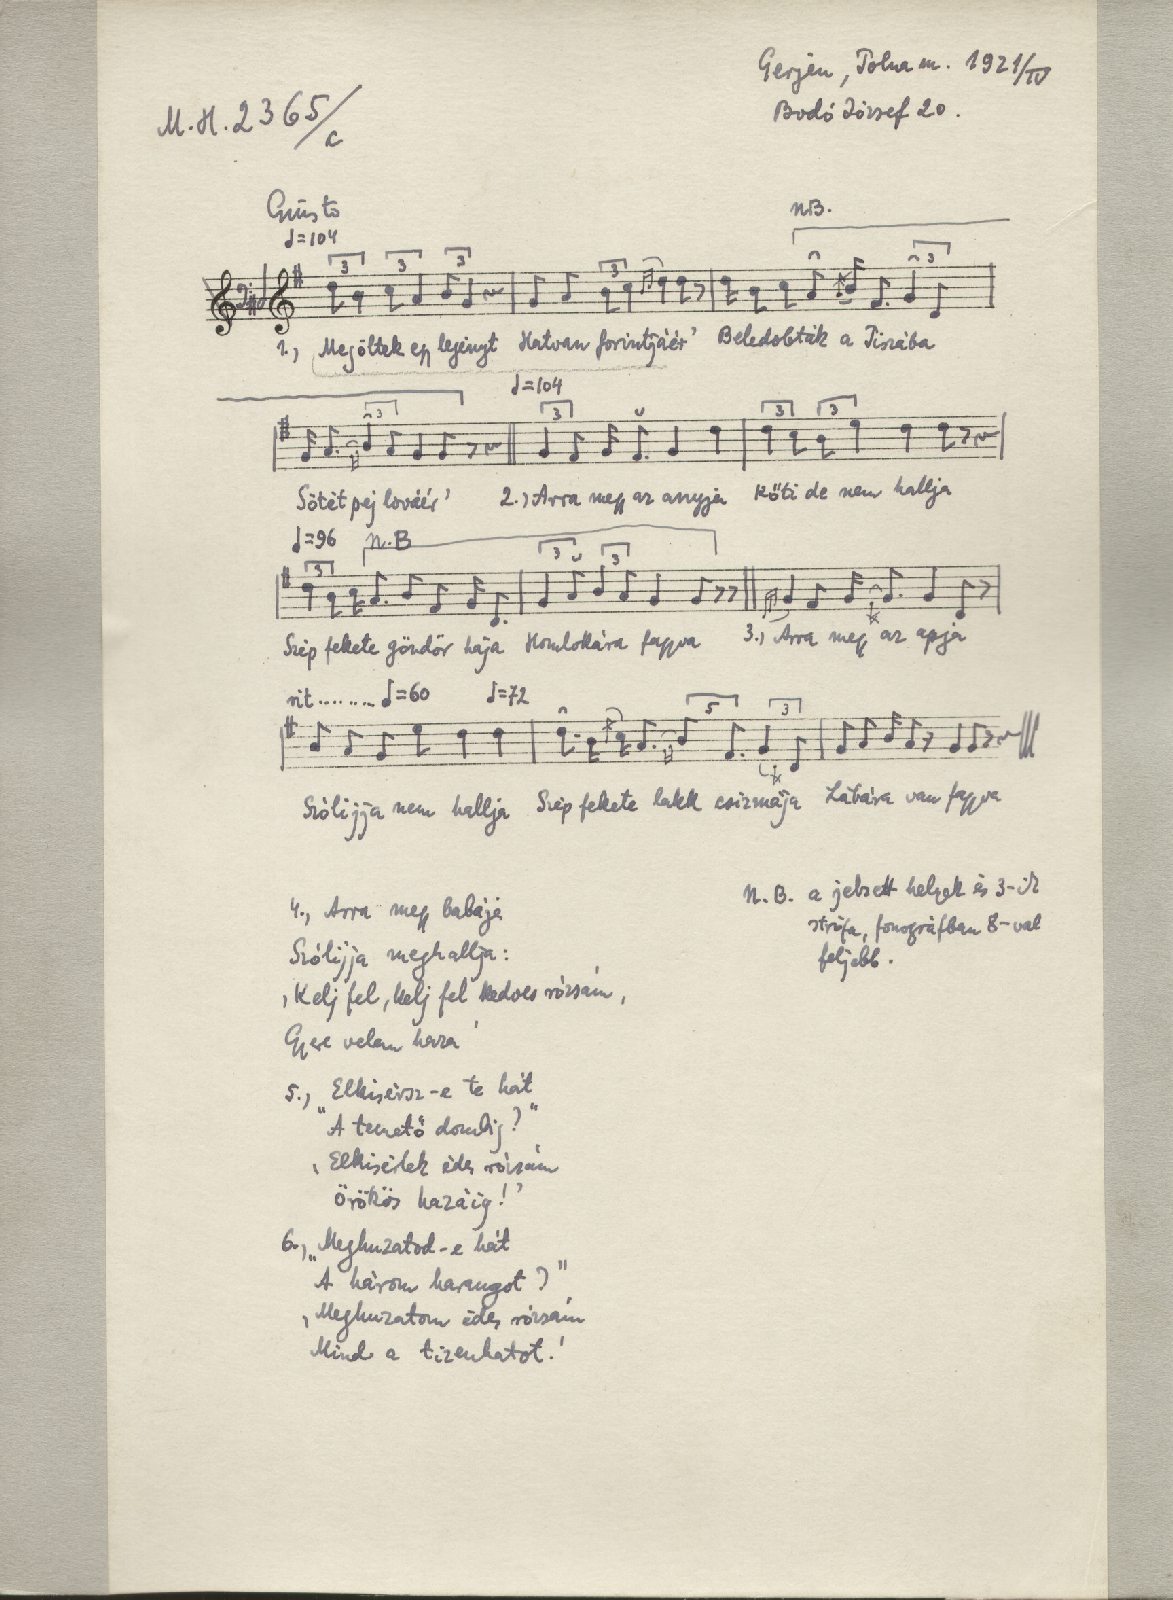 Gerjén, Tolna m. 1921/IV
M.H. 2365/c
Bodó József 20.
Giusto
N.B.
♩=104
3 3 3 3 3
1., Megöltek egy legényt Hatvan forintjáér' Beledobták a Tiszába
♩=104
3 3 3 3
Sötét pej lováér' 2., Arra megy az annyja Költi de nem hallja
♩=96 N.B
3 3 3
Szép fekete göndör hája Homlokára fagyva 3., Arra megy az apja
rit ........ ♩=60 ♩=72
5 3
Szólijja nem hallja Szép fekete lakk csizmája Lábára van fagyva
N.B. a jelzett helyek és 3-ik
strófa, fonográfban 8-val
feljebb.
4., Arra megy babája
Szólijja meghallja:
‚Kelj fel, kelj fel kedves rózsám,
Gyere velem haza'
5., Elkisérsz-e te hát
"A temető dombig?"
‚Elkisérlek édes rózsám
Örökös hazáig!'
6., „Meghuzatod-e hát
A három harangot?"
‚Meghuzatom édes rózsám
Mind a tizenhatot.'